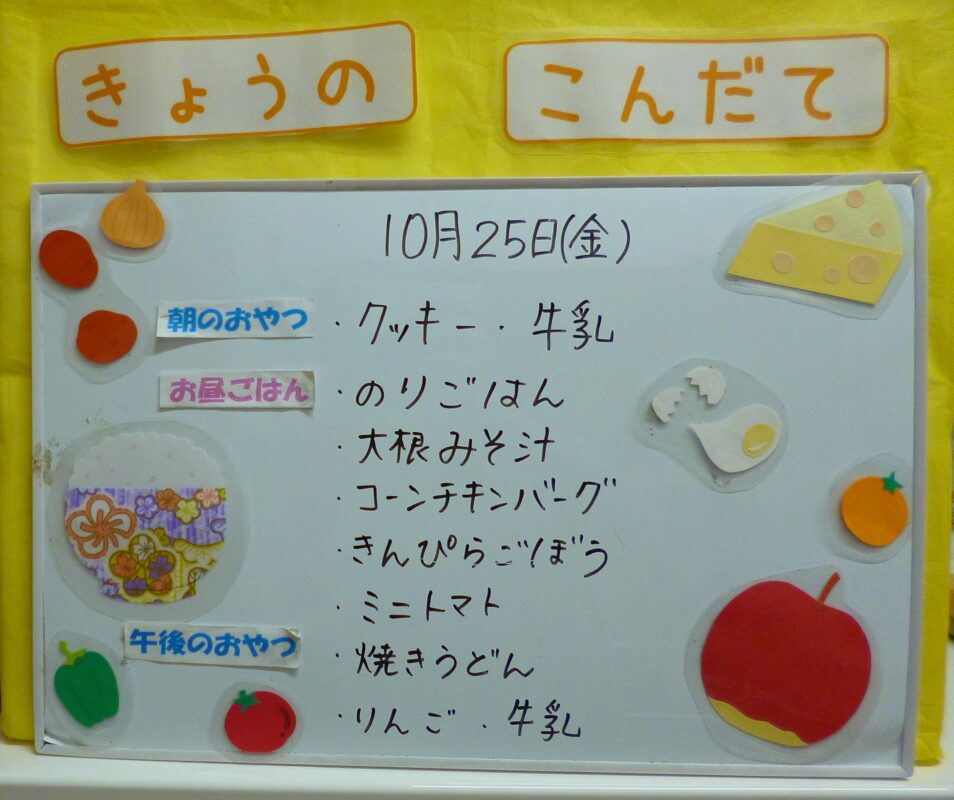 きょうの こんだて
10月25日(金)
朝のおやつ ・クッキー・牛乳
お昼ごはん ・のりごはん
・大根みそ汁
・コーンチキンバーグ
・きんぴらごぼう
・ミニトマト
午後のおやつ ・焼きうどん
・りんご・牛乳